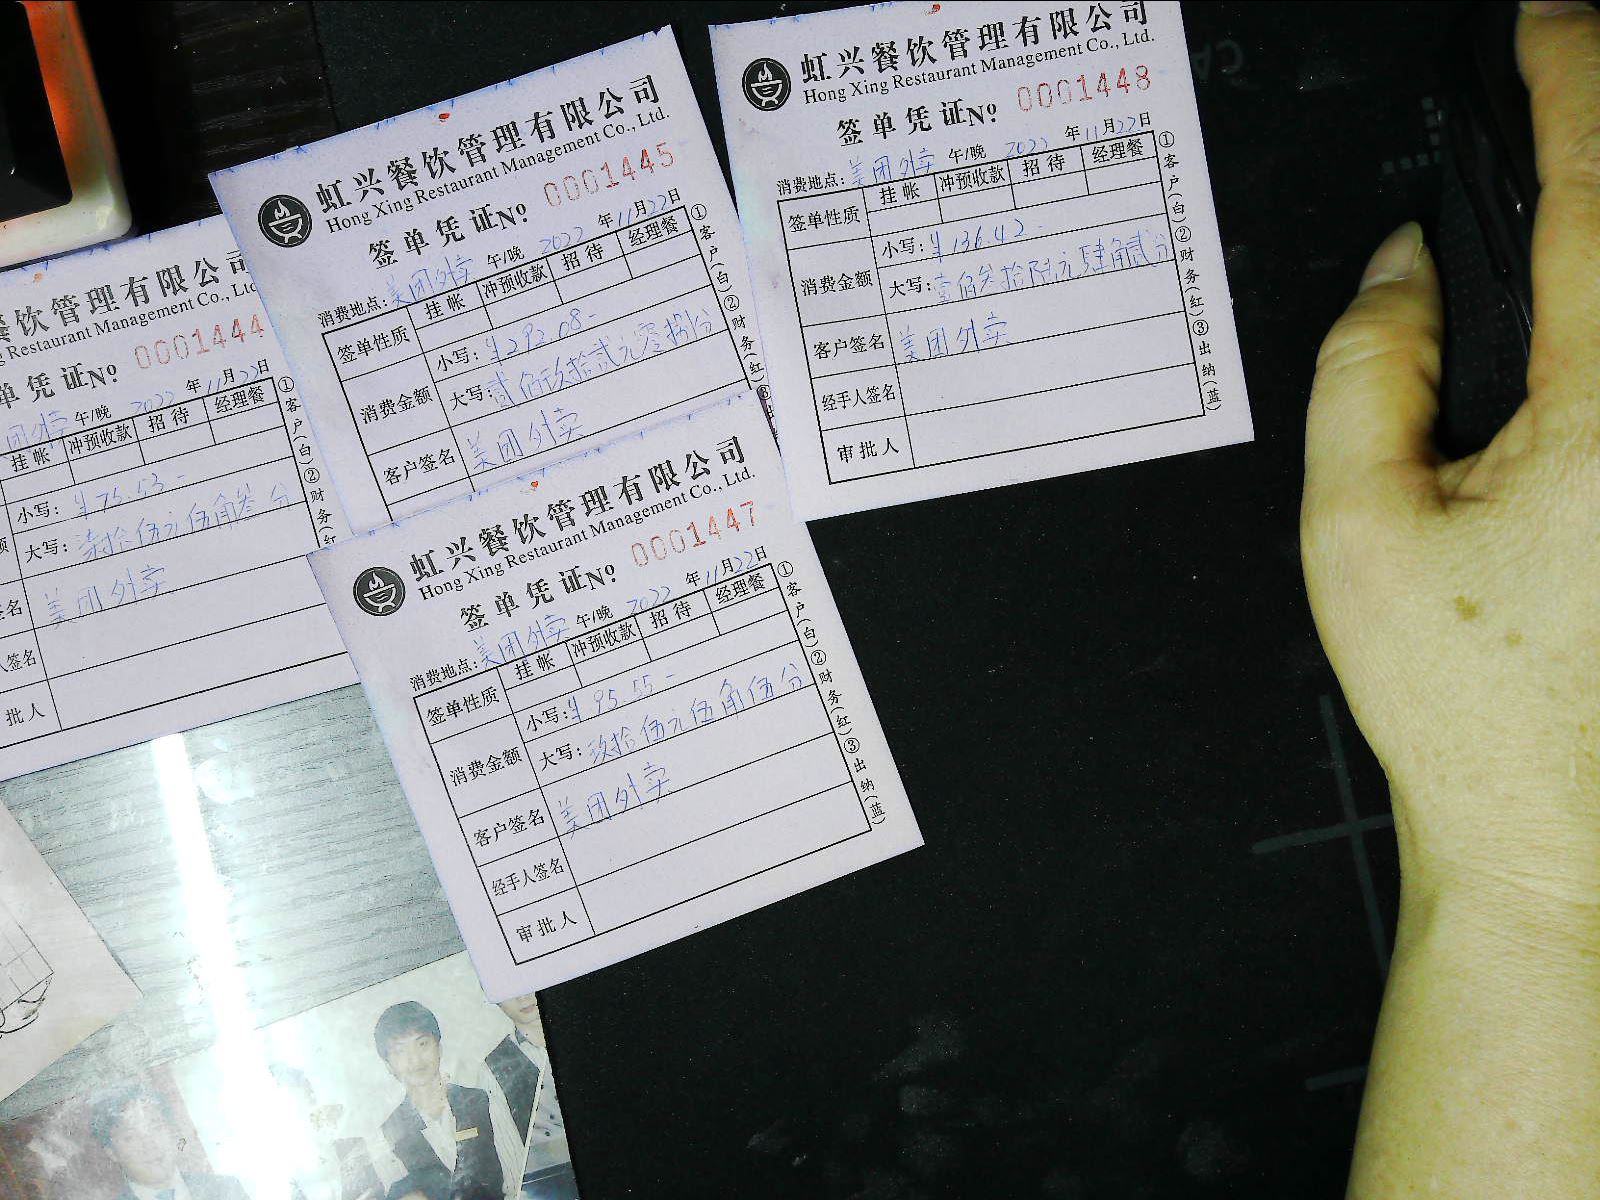 餐饮管理有限公司
g Restaurant Management Co., Ltd.
单凭证No 0001444
团外卖 午/晚 2022年11月22日
挂帐 冲预收款 招待 经理餐
小写: ¥75.53-
大写: 柒拾伍元伍角叁分
签名 美团外卖
人签名
批人
①客户(白)②财务(红
虹兴餐饮管理有限公司
Hong Xing Restaurant Management Co., Ltd.
签单凭证No 0001445
消费地点: 美团外卖 午/晚 2022年11月22日
签单性质 挂帐 冲预收款 招待 经理餐
消费金额 小写: ¥292.08-
大写: 贰佰玖拾贰元零捌分
客户签名 美团外卖
①客户(白)②财务(红)③
虹兴餐饮管理有限公司
Hong Xing Restaurant Management Co., Ltd.
签单凭证No 0001448
消费地点: 美团外卖 午/晚 2022年11月22日
签单性质 挂帐 冲预收款 招待 经理餐
消费金额 小写: ¥136.42-
大写: 壹佰叁拾陆元肆角贰分
客户签名 美团外卖
经手人签名
审批人
①客户(白)②财务(红)③出纳(蓝)
虹兴餐饮管理有限公司
Hong Xing Restaurant Management Co., Ltd.
签单凭证No 0001447
消费地点: 美团外卖 午/晚 2022年11月22日
签单性质 挂帐 冲预收款 招待 经理餐
消费金额 小写: ¥95.55-
大写: 玖拾伍元伍角伍分
客户签名 美团外卖
经手人签名
审批人
①客户(白)②财务(红)③出纳(蓝)